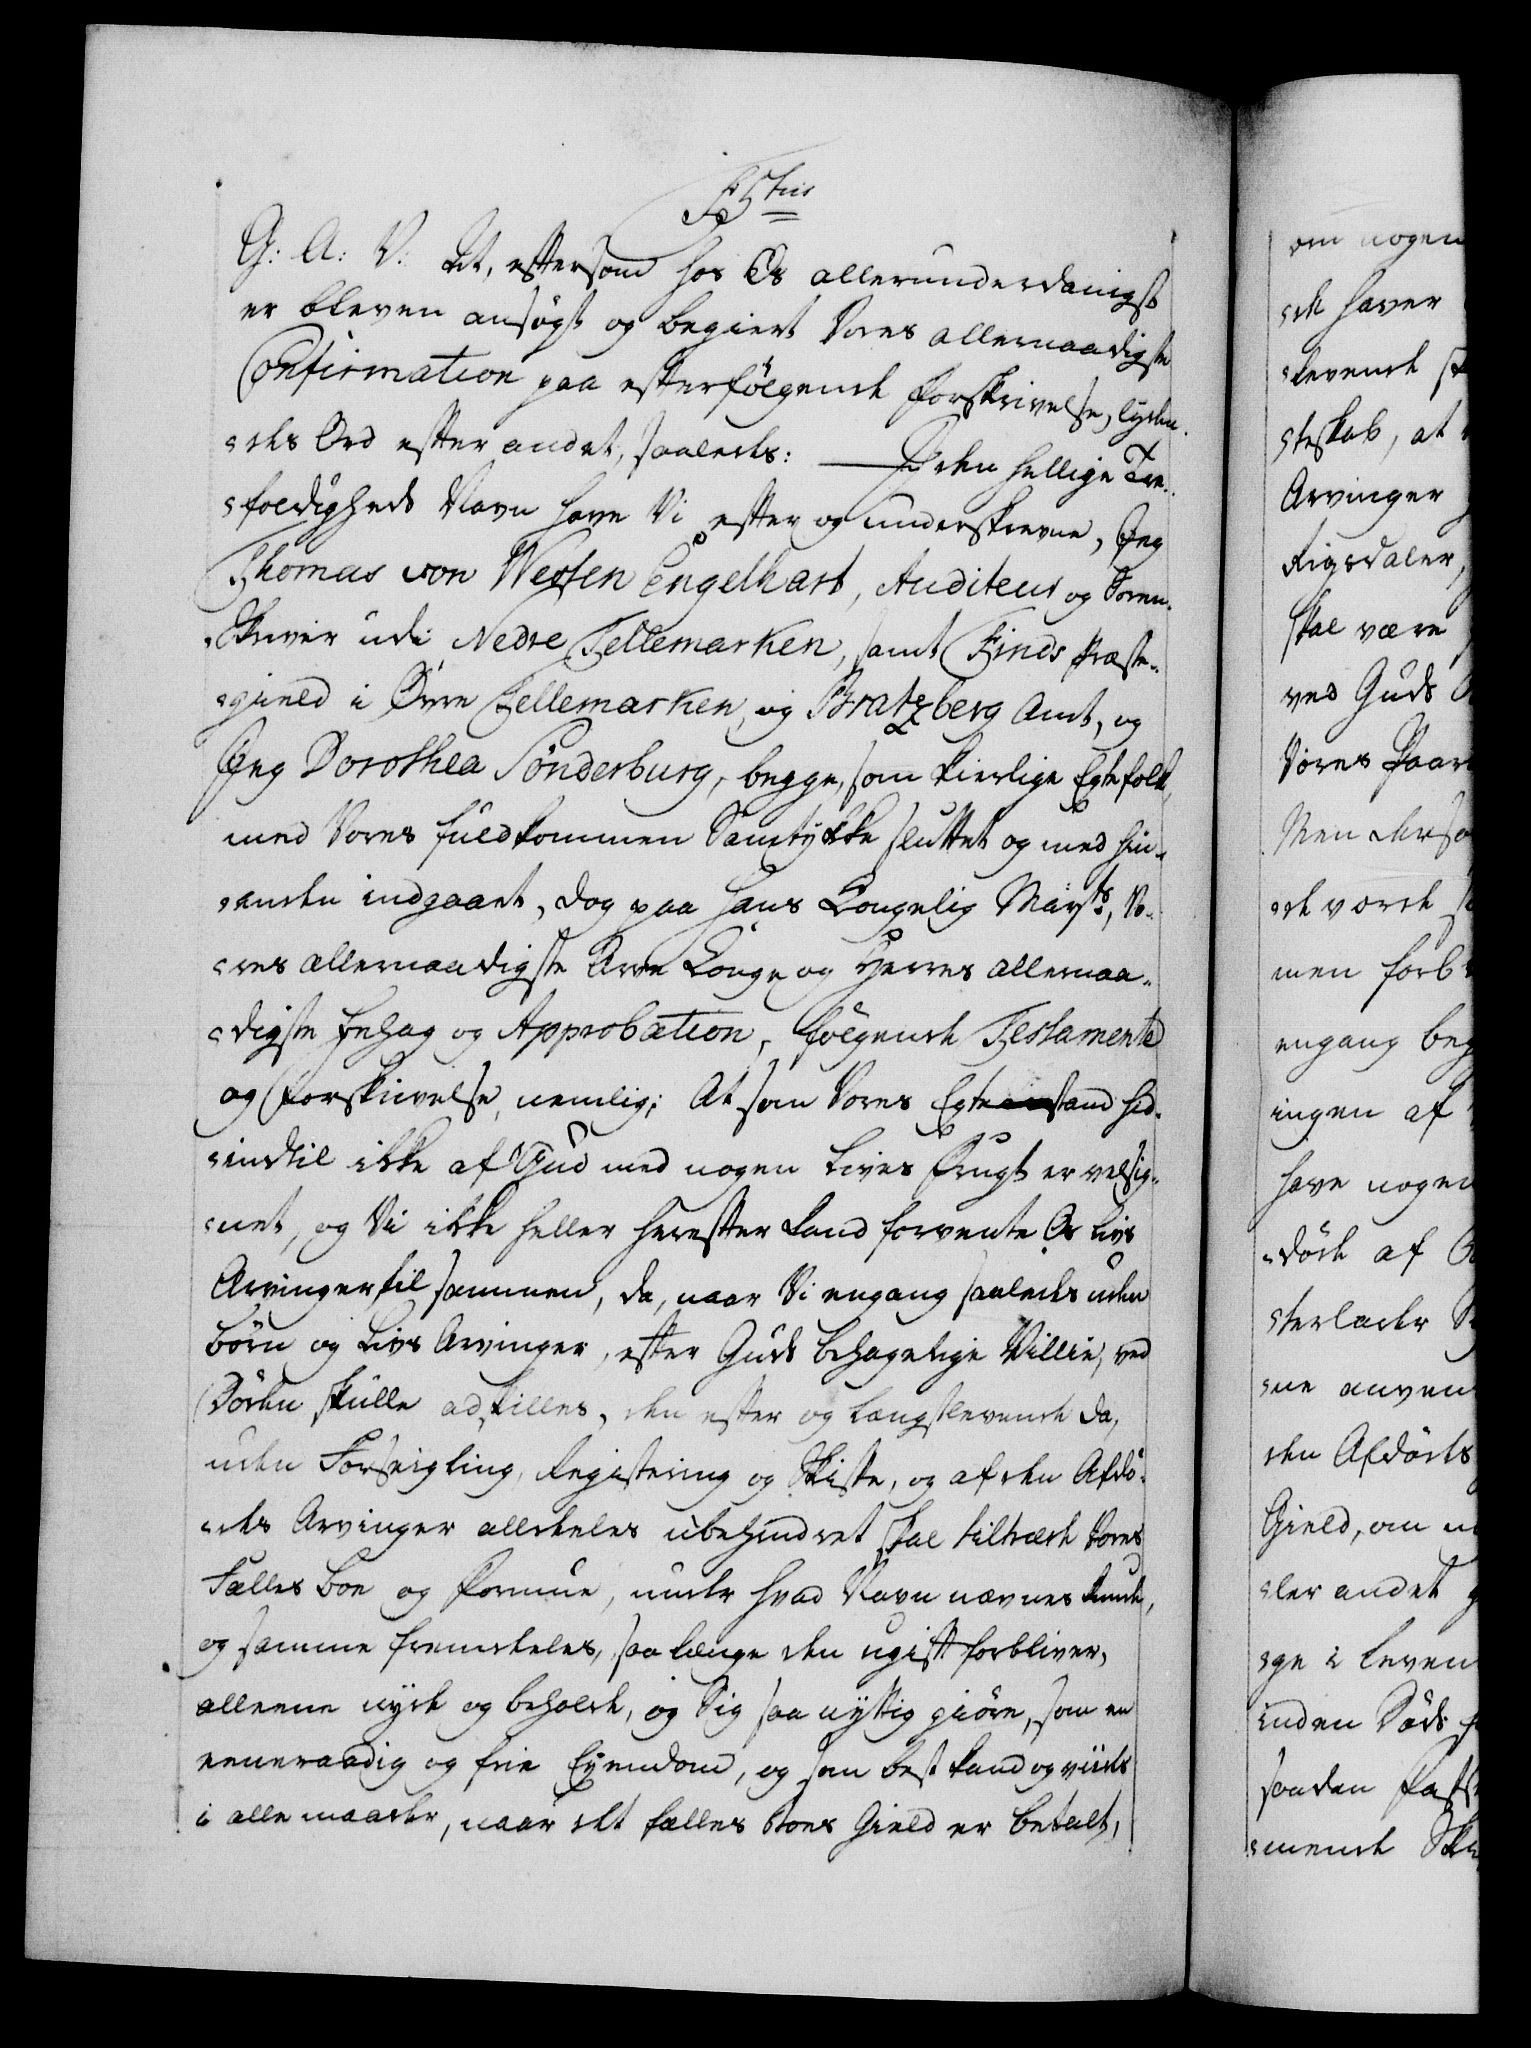 G: A: V: At, eftersom hos Os allerunderdanigst
er bleven ansøgt og begiert Vores allernaadigste
Confirmation paa efterfølgende Forskrivelse, lyden-
-des Ord efter andet, saaledes: I den hellige Tre-
-foldigheds Navn have Vi efter og underskrevne, Jeg
Thomas von Westen Engelhart, Auditeur og Soren-
-skriver udi Nedre Tellemarken, samt Tinds Præste-
-gield i Øvre Tellemarken, og Bratzberg Amt, og
Jeg Dorothea Sönderburg, begge, som kierlige Egtefolk,
med Vores fuldkommen Samtykke sluttet og med hin-
-anden indgaaet, dog paa Hans Kongelig Mayts, Vo-
-res allernaadigste Arve Konge og Herres allernaa-
-digste behag og Approbation, følgende Testamente
og Forskrivelse, nemlig: At som Vores Egtestand hid-
-indtil ikke af Gud med nogen Livs Frugt er velsig-
-net, og Vi ikke heller herefter kand forvente Os Livs
Arvinger tilsammen, da, naar Vi engang saaledes uden
Børn og Livs Arvinger, efter Guds behagelige Villie, ved
Døden skulle adskilles, den efter og længstlevende da,
uden Forseigling, Registering og Skifte, og af den Afdø-
-des Arvinger aldeles ubehindret skal tiltræde Vores
Fælles Boe og Formue, under hvad Navn nævnes kunde,
og samme fremdeles, saa længe den ugift forbliver,
alleene nyde og beholde, og Sig saa nyttig giøre, som en
eeneraadig og frie Eyendom, og som best kand og viides
i alle maader, naar det fælles Boes Gield er betalt,
om nogen
-de haver
-levende
-teskab, at
Arvinger
Rigsdaler,
skal være
ved Guds
Vores Paar
Men dersom
-de vorde
men forb
engang beg
ingen af
have nogen
-døde af
-terlader
-ne anven
den Afdødes
Gield, om
-ler andet
-ge i Leven
inden Døds
saadan
-mende